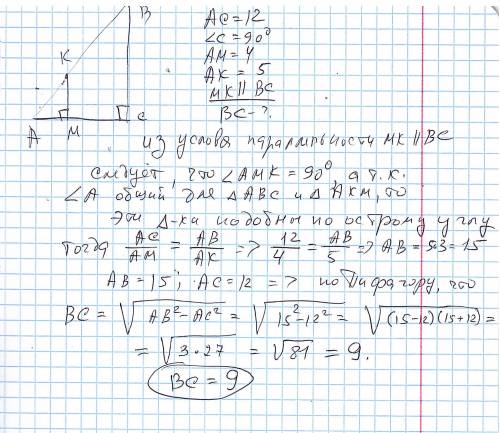 B
K
A M C
AC = 12
∠C = 90°
AM = 4
AK = 5
MK || BC
BC - ?
из условя паралльности MK || BC
следует, что ∠AMK = 90°, а т.к.
∠A общий для △ABC и △AKM, то
эти △-ки подобны по острому углу
Тогда AC/AM = AB/AK => 12/4 = AB/5 => AB = 5·3 = 15
AB = 15; AC = 12 => по Пифагору, что
BC = √(AB² - AC²) = √(15² - 12²) = √((15-12)(15+12)) =
= √(3·27) = √81 = 9.
BC = 9